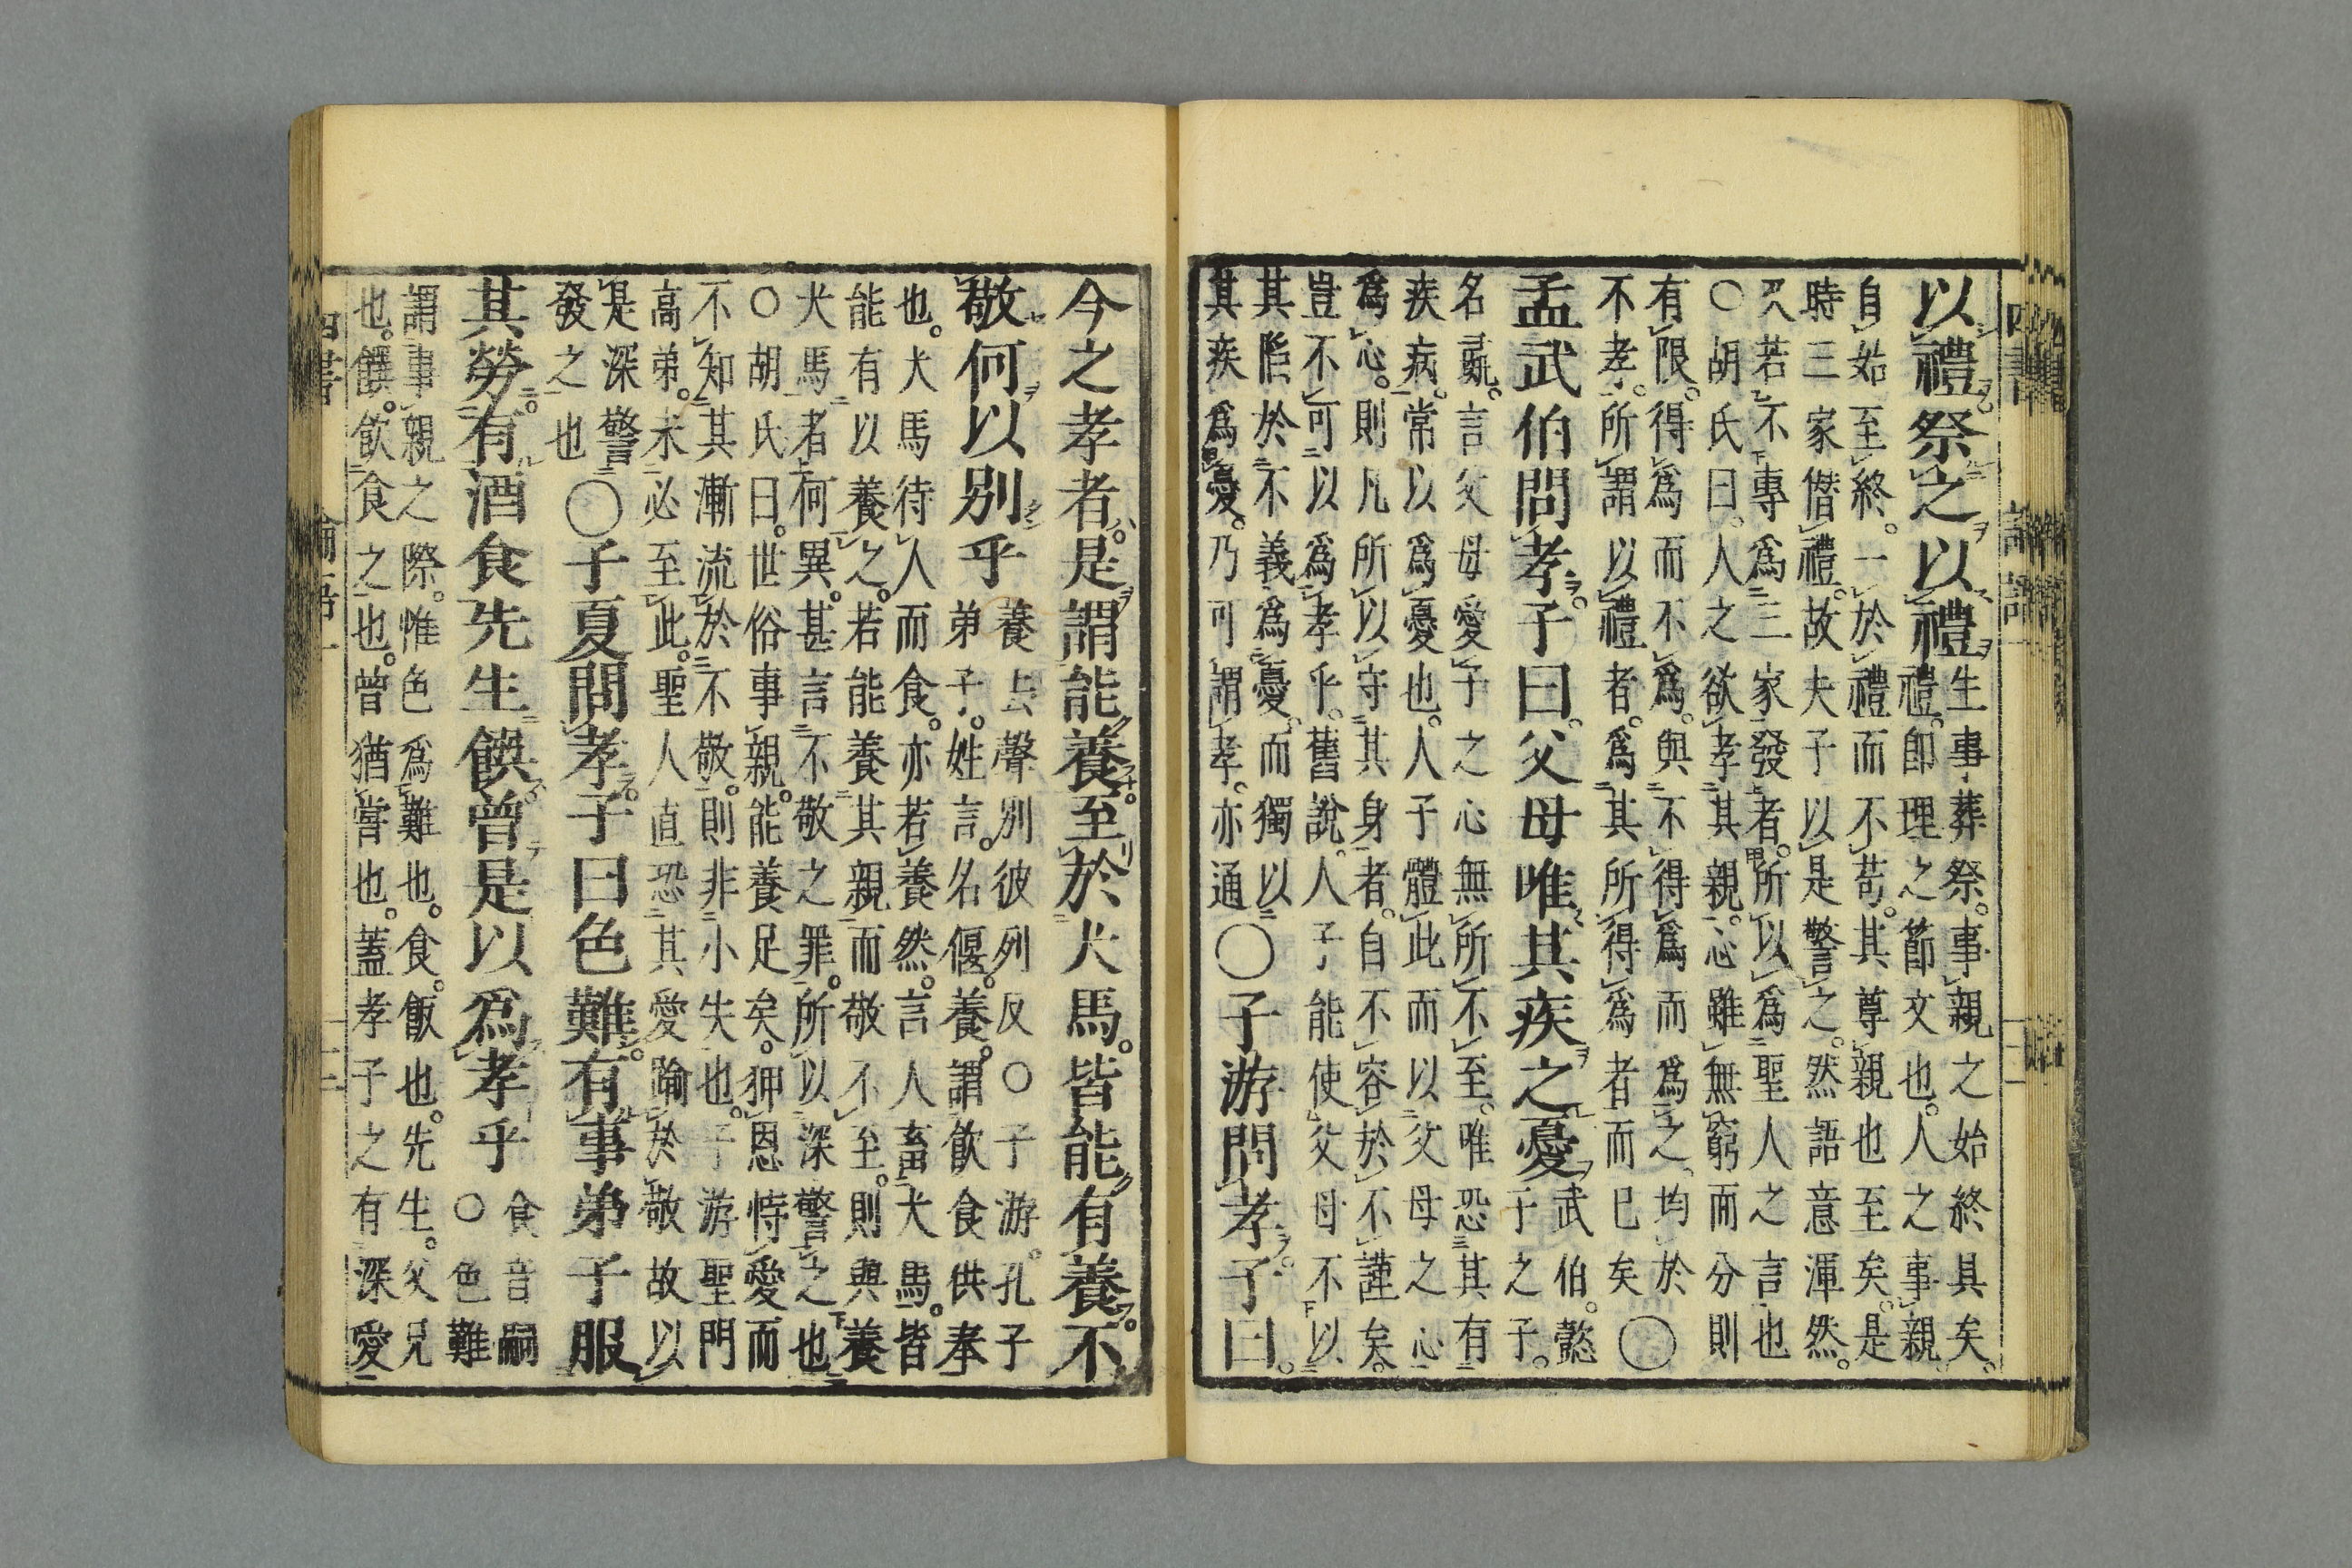 以禮祭之以禮
生事葬祭。事親之始終具矣。
禮。即理之節文也。人之事親。
自始至終。一於禮而不苟。其尊親也至矣。是
時三家僭禮。故夫子以是警之。然語意渾然。
又若不專爲三家發者。所以爲聖人之言也
○胡氏曰。人之欲孝其親。心雖無窮而分則
有限。得爲而不爲。與不得爲而爲之、均於
不孝。所謂以禮者。爲其所得爲者而已矣
○
孟武伯問孝。子曰。父母唯其疾之憂
武伯。懿
子之子。
名彘。言父母愛子之心無所不至。唯恐其有
疾病。常以爲憂也。人子體此而以父母之心
爲心。則凡所以守其身者。自不容於不謹矣。
豈不可以爲孝乎。舊說。人子能使父母不以
其陷於不義爲憂。而獨以
其疾爲憂。乃可謂孝。亦通
○子游問孝。子曰。
今之孝者。是謂能養。至於犬馬。皆能有養。不
敬何以別乎
養去聲別彼列反○子游。孔子
弟子。姓言。名偃。養。謂飲食供奉
也。犬馬待人而食。亦若養然。言人畜犬馬。皆
能有以養之。若能養其親而敬不至。則與養
犬馬者何異。甚言不敬之罪。所以深警之也
○胡氏曰。世俗事親。能養足矣。狎恩恃愛而
不知其漸流於不敬。則非小失也。子游聖門
高弟。未必至此。聖人直恐其愛踰於敬故以
是深警
發之也
○子夏問孝。子曰色難。有事弟子服
其勞。有酒食先生饌。曾是以爲孝乎
食音嗣
○色難
謂事親之際。惟色爲難也。食。飯也。先生。父兄
也。饌。飲食之也。曾猶嘗也。蓋孝子之有深愛
四書
論語一